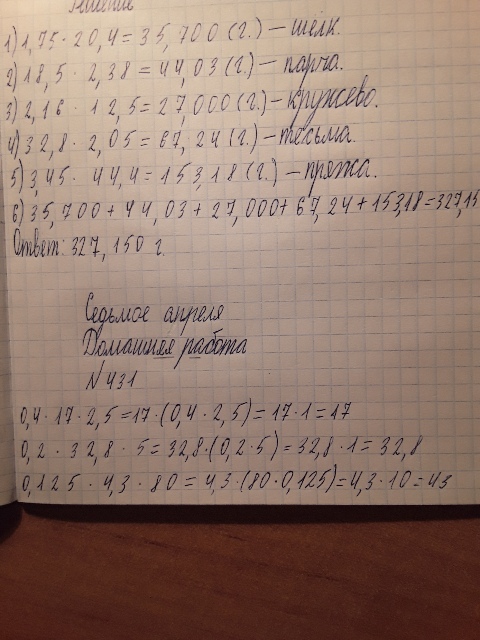 Решение
1) 1,75 · 20,4 = 35,700 (г.) – шелк.
2) 18,5 · 2,38 = 44,03 (г.) – парча.
3) 2,16 · 12,5 = 27,000 (г.) – кружево.
4) 32,8 · 2,05 = 67,24 (г.) – тесьма.
5) 3,45 · 44,4 = 153,18 (г.) – пряжа.
6) 35,700 + 44,03 + 27,000 + 67,24 + 153,18 = 327,15
Ответ: 327,150 г.
Седьмое апреля
Домашняя работа
N 431
0,4 · 17 · 2,5 = 17 · (0,4 · 2,5) = 17 · 1 = 17
0,2 · 32,8 · 5 = 32,8 · (0,2 · 5) = 32,8 · 1 = 32,8
0,125 · 4,3 · 80 = 4,3 · (80 · 0,125) = 4,3 · 10 = 43